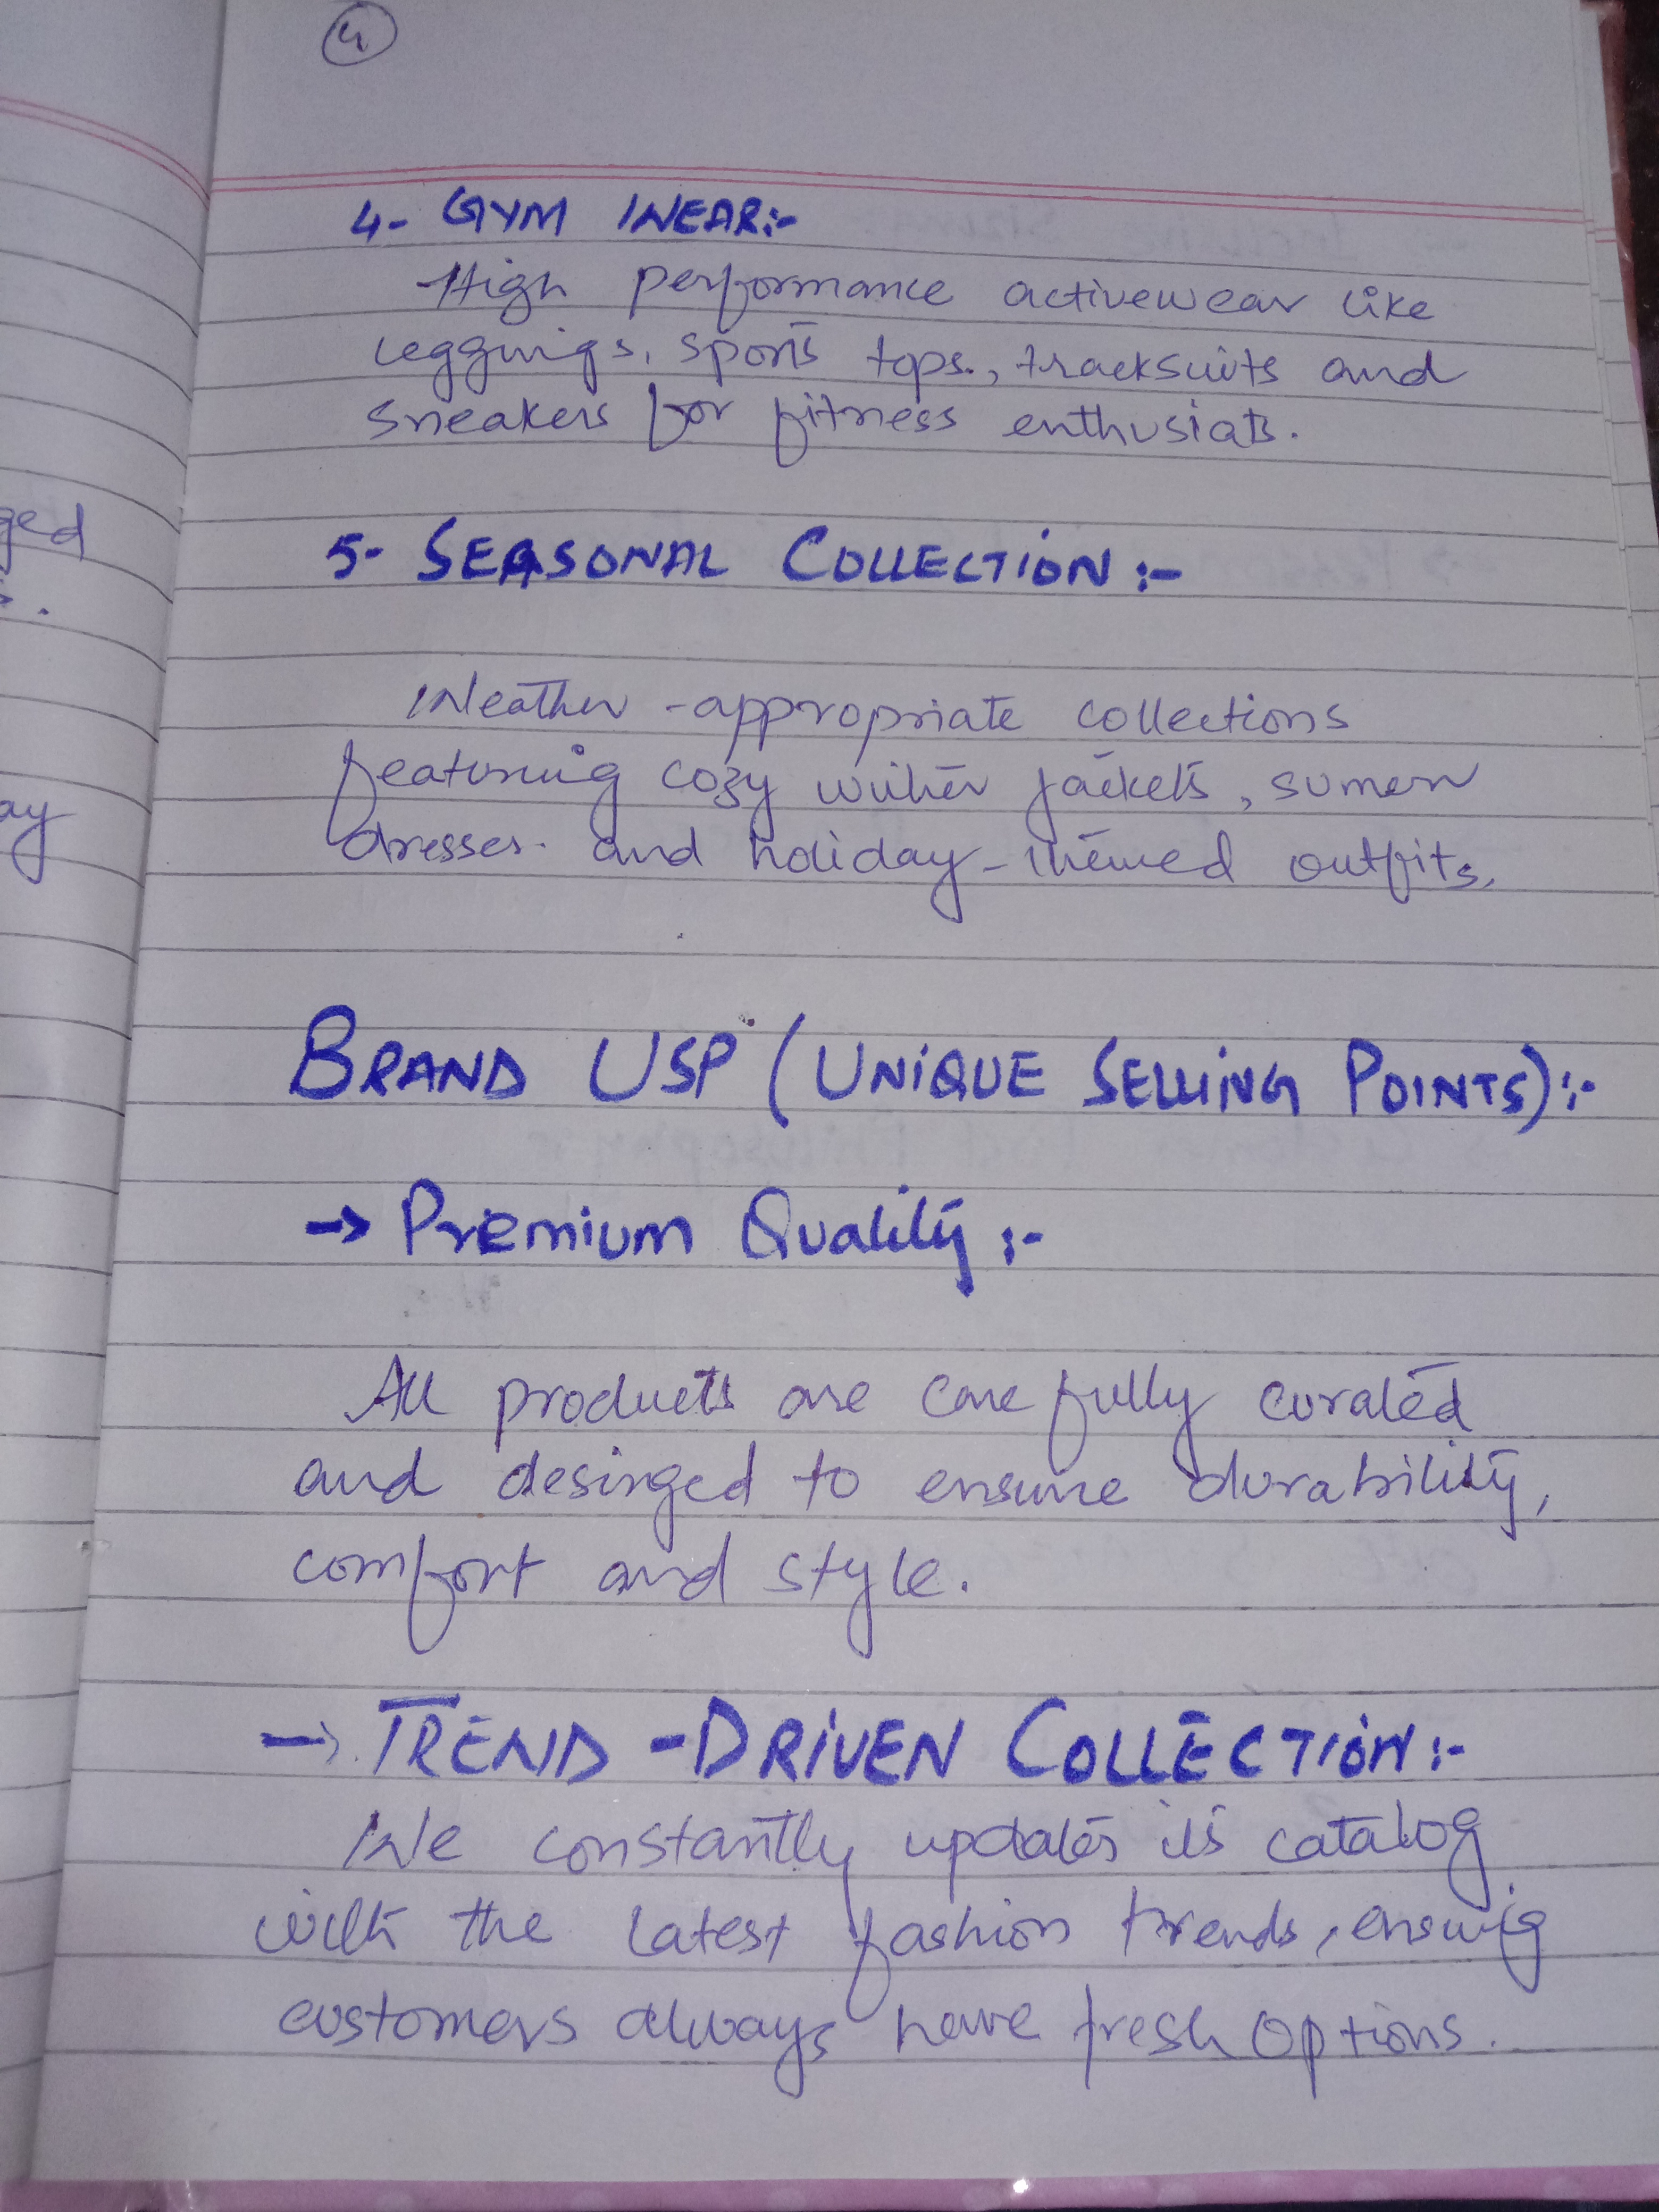 4
4- GYM WEAR:-
High performance activewear like
leggings, sports tops., tracksuits and
sneakers for fitness enthusiats.
5- SEASONAL COLLECTION :-
Weather -appropriate collections
featuring cozy winter jackets, sumer
dresses. and holiday-themed outfits.
BRAND USP (UNIQUE SELLING POINTS):-
→ Premium Quality :-
All products are carefully curated
and desinged to ensure durability,
comfort and style.
→ TREND -DRIVEN COLLECTION:-
We constantly updates its catalog
with the latest fashion trends, ensuring
customers always have fresh options.
ged
ay